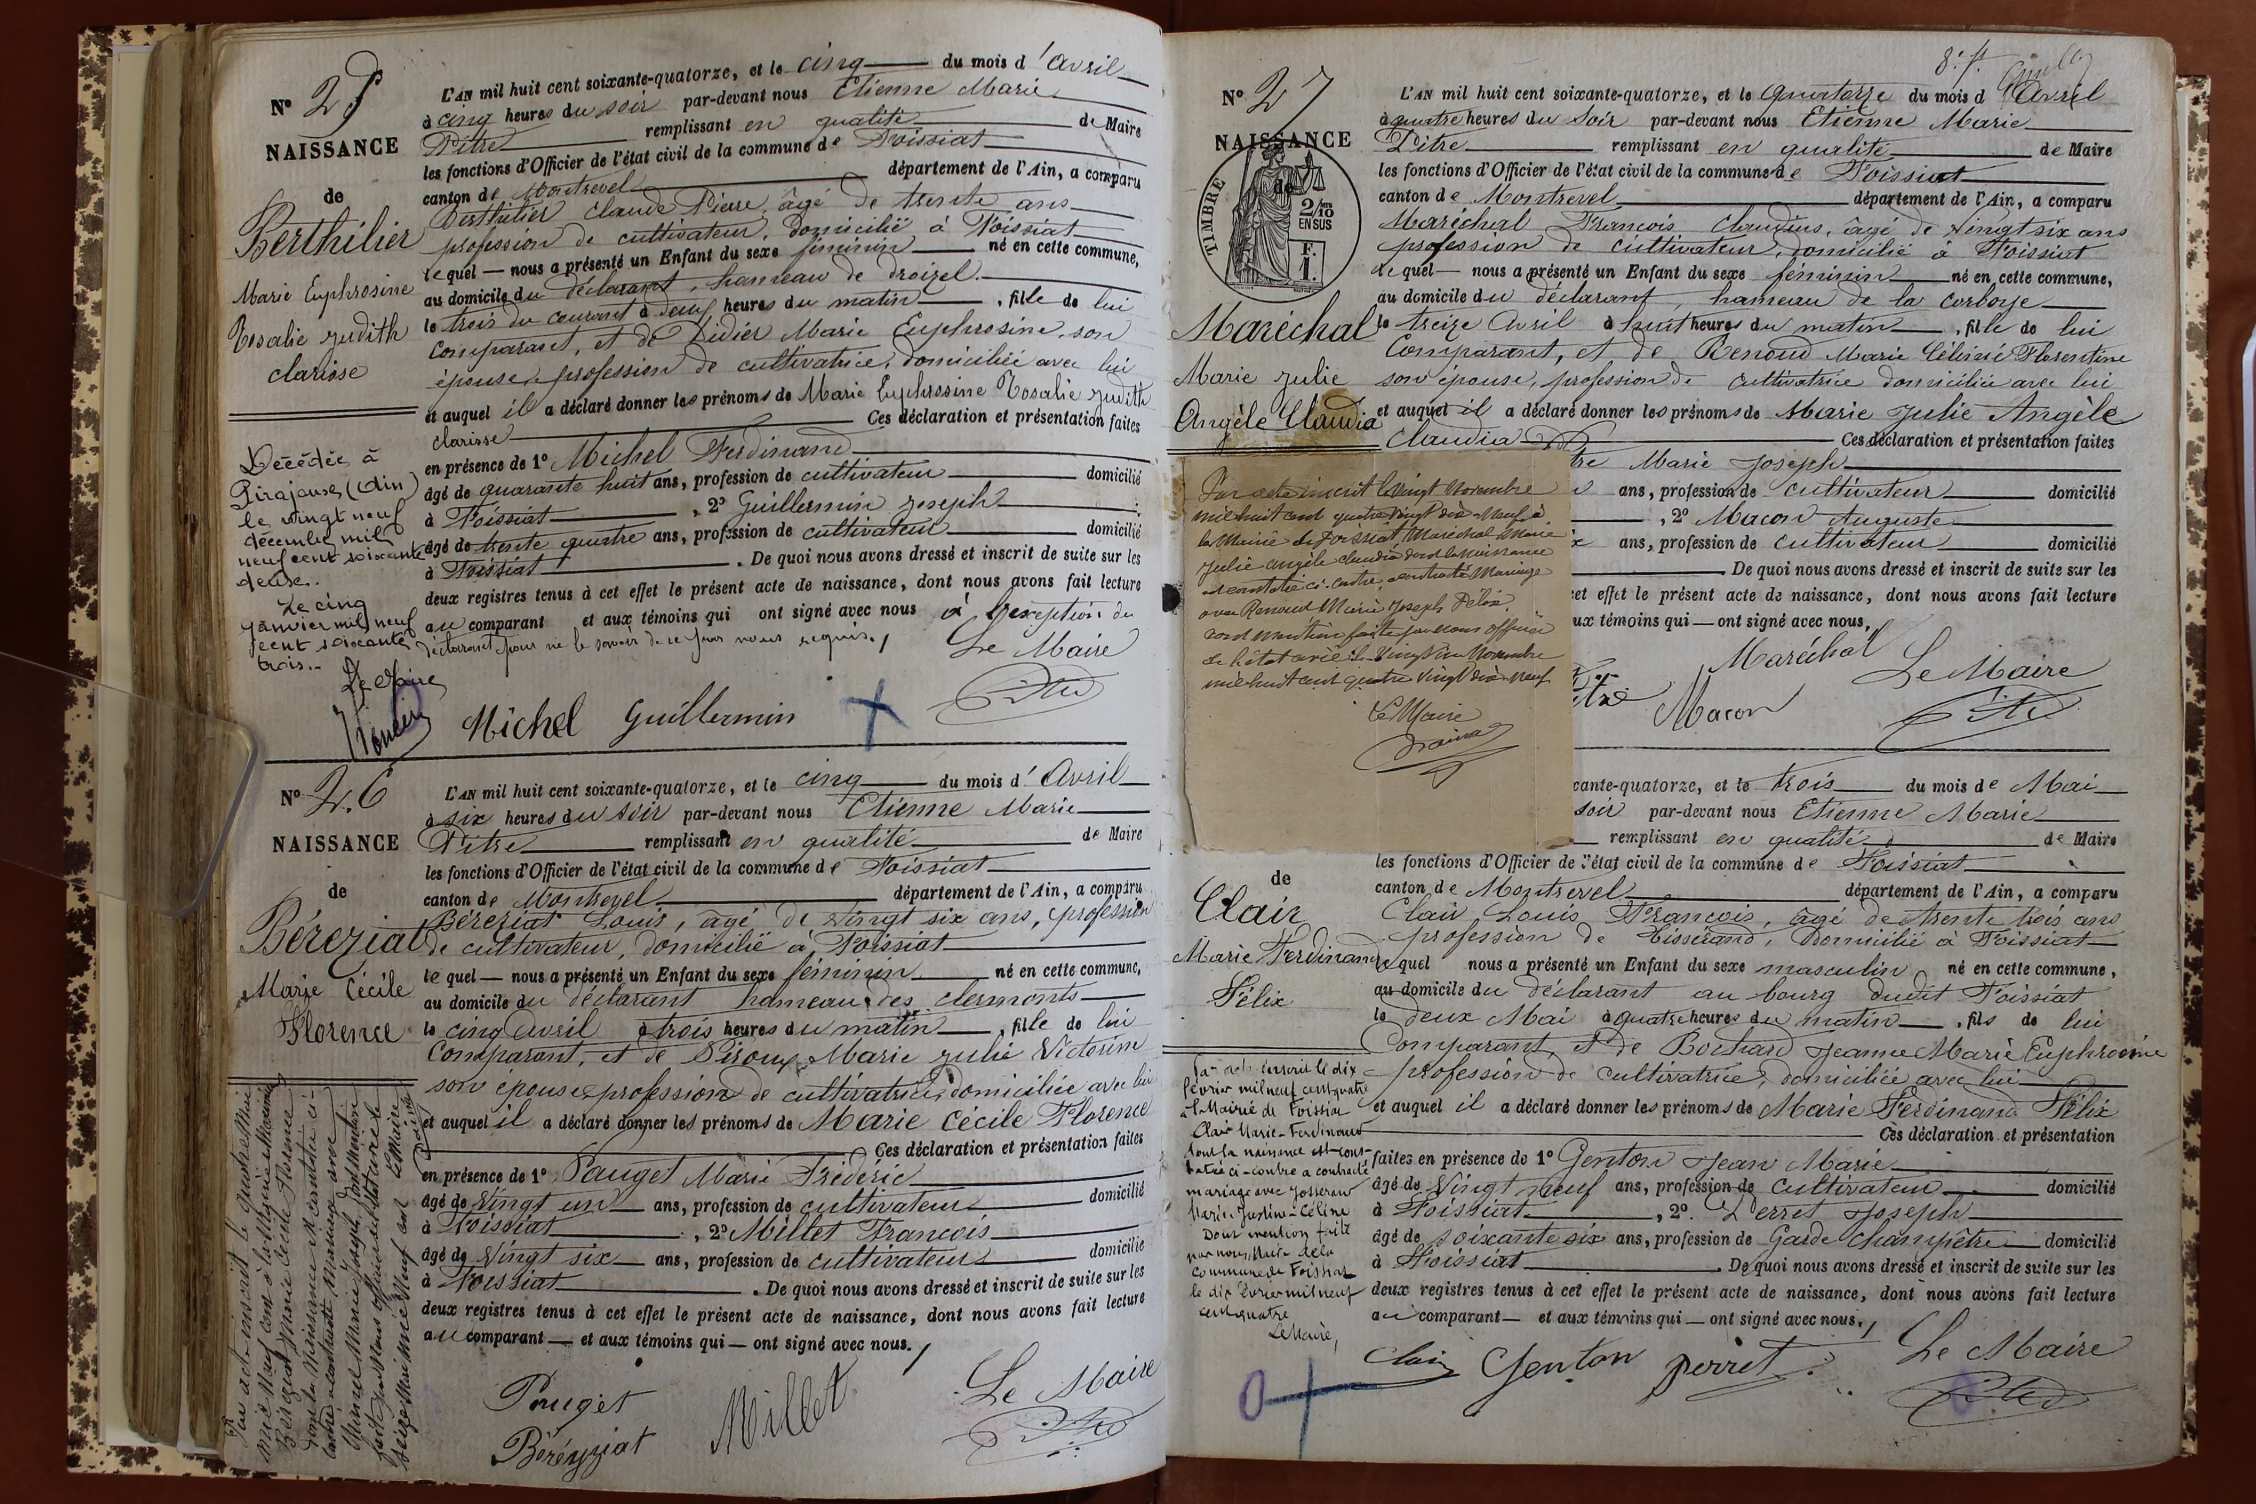 N° 25
NAISSANCE
de
Berthilier
Marie Euphrosine
Rosalie Judith
clarisse
Décédée à
(Ain)
le vingt neuf
décembre mil
neuf cent soixante
deux..
Le cinq
janvier mil neuf
cent soixante
trois..
Le Maire
L'AN mil huit cent soixante-quatorze, et le cinq du mois d'Avril
à cinq heures du soir par-devant nous Etienne Marie
Pitre remplissant en qualité de Maire
les fonctions d'Officier de l'état civil de la commune de Foissiat
canton de Montrevel département de l'Ain, a comparu
Berthilier Claude Pierre, âgé de trente ans
profession de cultivateur, domicilié à Foissiat
lequel nous a présenté un Enfant du sexe féminin né en cette commune,
au domicile du déclarant, hameau de
le trois du courant à deux heures du matin, fille de lui
comparant, et de Didier Marie Euphrosine, son
épouse, profession de cultivatrice, domiciliée avec lui
et auquel il a déclaré donner les prénoms de Marie Euphrosine Rosalie Judith
clarisse Ces déclaration et présentation faites
en présence de 1° Michel Ferdinand
âgé de quarante huit ans, profession de cultivateur domicilié
à Foissiat, 2° Guillermin Joseph
âgé de trente quatre ans, profession de cultivateur domicilié
à Foissiat. De quoi nous avons dressé et inscrit de suite sur les
deux registres tenus à cet effet le présent acte de naissance, dont nous avons fait lecture
au comparant et aux témoins qui ont signé avec nous à l'exception du
déclarant pour ne le savoir de ce par nous requis.
Le Maire
Michel Guillermin Pitre
N° 26
NAISSANCE
de
Béréziat
Marie Cécile
Florence
Par acte inscrit le quatre Mai
mil neuf cent à la Mairie de
Béréziat Marie Cécile Florence
dont la Naissance est constatée ci-
contre a contracté Mariage avec
Marie Joseph, dont Mention
faite par Nous officier de l'état civil le
Le Maire
L'AN mil huit cent soixante-quatorze, et le cinq du mois d'Avril
à six heures du soir par-devant nous Etienne Marie
Pitre remplissant en qualité de Maire
les fonctions d'Officier de l'état civil de la commune de Foissiat
canton de Montrevel département de l'Ain, a comparu
Béréziat Louis, âgé de vingt six ans, profession
de cultivateur, domicilié à Foissiat
lequel nous a présenté un Enfant du sexe féminin né en cette commune,
au domicile du déclarant hameau des clermonts
le cinq Avril à trois heures du matin, fille de lui
Comparant, et de Piroux Marie Julie Victorine
son épouse, profession de cultivatrice, domiciliée avec lui
et auquel il a déclaré donner les prénoms de Marie Cécile Florence
Ces déclaration et présentation faites
en présence de 1° Pauget Marie Frédéric
âgé de vingt un ans, profession de cultivateur domicilié
à Foissiat, 2° Millet François
âgé de vingt six ans, profession de cultivateur domicilié
à Foissiat. De quoi nous avons dressé et inscrit de suite sur les
deux registres tenus à cet effet le présent acte de naissance, dont nous avons fait lecture
au comparant et aux témoins qui ont signé avec nous.
Le Maire
Pauget
Millet
Béréziat Pitre
N° 27
NAISSANCE
de
TIMBRE
2/10
EN SUS
F.
1.
Maréchal
Marie Julie
Angèle Claudia
L'AN mil huit cent soixante-quatorze, et le quatorze du mois d'Avril
à quatre heures du soir par-devant nous Etienne Marie
Pitre remplissant en qualité de Maire
les fonctions d'Officier de l'état civil de la commune de Foissiat
canton de Montrevel département de l'Ain, a comparu
Maréchal François Claudius, âgé de vingt six ans
profession de cultivateur, domicilié à Foissiat
lequel nous a présenté un Enfant du sexe féminin né en cette commune,
au domicile du déclarant, hameau de la
le treize Avril à huit heures du matin, fille de lui
Comparant, et de Renoud Marie Florentine
son épouse, profession de cultivatrice domiciliée avec lui
et auquel il a déclaré donner les prénoms de Marie Julie Angèle
Claudia Ces déclaration et présentation faites
tre Marie Joseph
ans, profession de cultivateur domicilié
, 2° Macon Auguste
ans, profession de cultivateur domicilié
De quoi nous avons dressé et inscrit de suite sur les
cet effet le présent acte de naissance, dont nous avons fait lecture
ux témoins qui ont signé avec nous,
Maréchal Le Maire
Macon Pitre
Par acte inscrit le vingt Novembre
mil huit cent quatre vingt dix-Neuf à
la Mairie de Foissiat Maréchal Marie
Julie angèle claudia dont la Naissance
est constatée ci-contre, a contracté Mariage
avec Renoud Marie Joseph Félix,
dont Mention faite par nous officier
de l'état civil le Vingt Novembre
mil huit cent quatre vingt dix-neuf
Le Maire
de
Clair
Marie Ferdinand
Félix
Par acte inscrit le dix
février mil neuf cent quatre
à la Mairie de Foissiat
Clair Marie-Ferdinand
dont la naissance est cons-
tatée ci-contre a contracté
mariage avec Josserand
Marie-Justine-Céline
Dont mention faite
par nous, Maire de la
commune de Foissiat
le dix février mil neuf
cent quatre
Le Maire,
xante-quatorze, et le trois du mois de Mai
soir par-devant nous Etienne Marie
remplissant en qualité de Maire
les fonctions d'Officier de l'état civil de la commune de Foissiat
canton de Montrevel département de l'Ain, a comparu
Clair Louis François, âgé de trente trois ans
profession de Tisserand, domicilié à Foissiat
lequel nous a présenté un Enfant du sexe masculin né en cette commune,
au domicile du déclarant au bourg dudit Foissiat
le deux Mai à quatre heures du matin, fils de lui
Comparant, et de Bochard Jeanne Marie Euphrosine
profession de cultivatrice, domiciliée avec lui
et auquel il a déclaré donner les prénoms de Marie Ferdinand Félix
Ces déclaration et présentation
faites en présence de 1° Genton Jean Marie
âgé de vingt neuf ans, profession de cultivateur domicilié
à Foissiat, 2° Perret Joseph
âgé de soixante six ans, profession de Garde Champêtre domicilié
à Foissiat. De quoi nous avons dressé et inscrit de suite sur les
deux registres tenus à cet effet le présent acte de naissance, dont nous avons fait lecture
au comparant et aux témoins qui ont signé avec nous.
Le Maire
Clair Genton perret Pitre